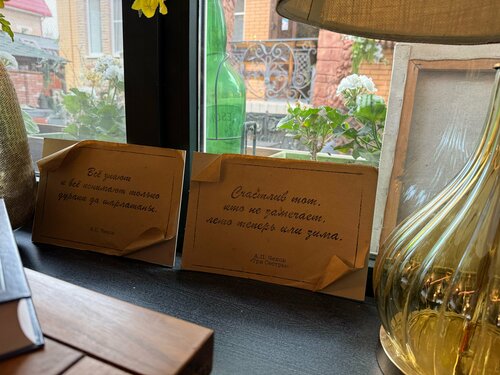 Всё знают
и всё понимают только
дураки да шарлатаны.
А.П. Чехов
Счастлив тот,
кто не замечает,
лето теперь или зима.
А.П. Чехов
«Три Сестры»